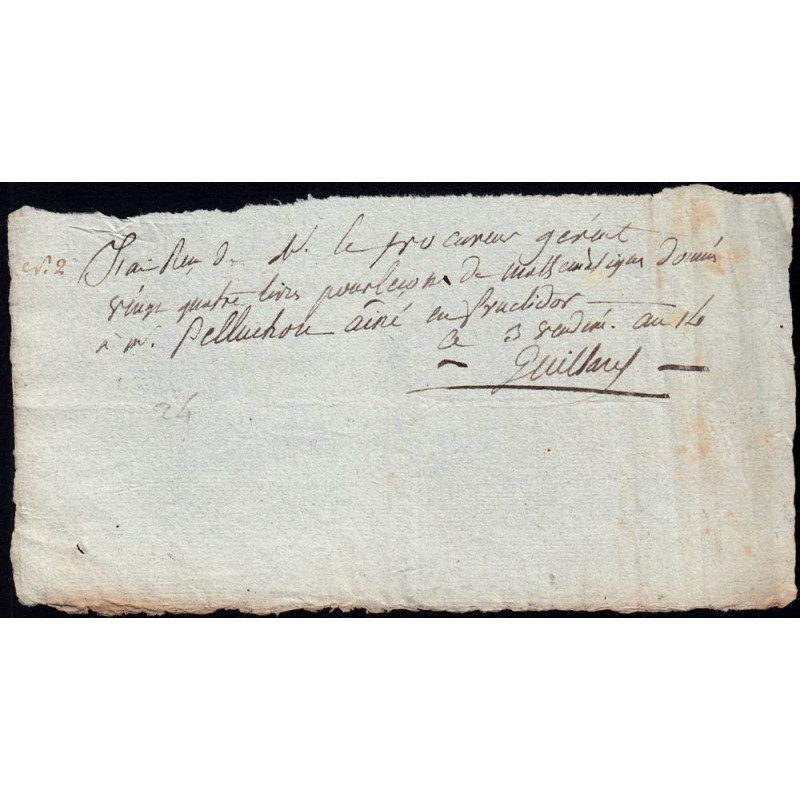 N.° 2
J'ai Reçu de Mr. le procureur gérant
vingt quatre livres pour leçons de mathématiques donnés
à mr. Pelluchon ainé en fructidor
ce 3 vendém. an 14
Guillard
24